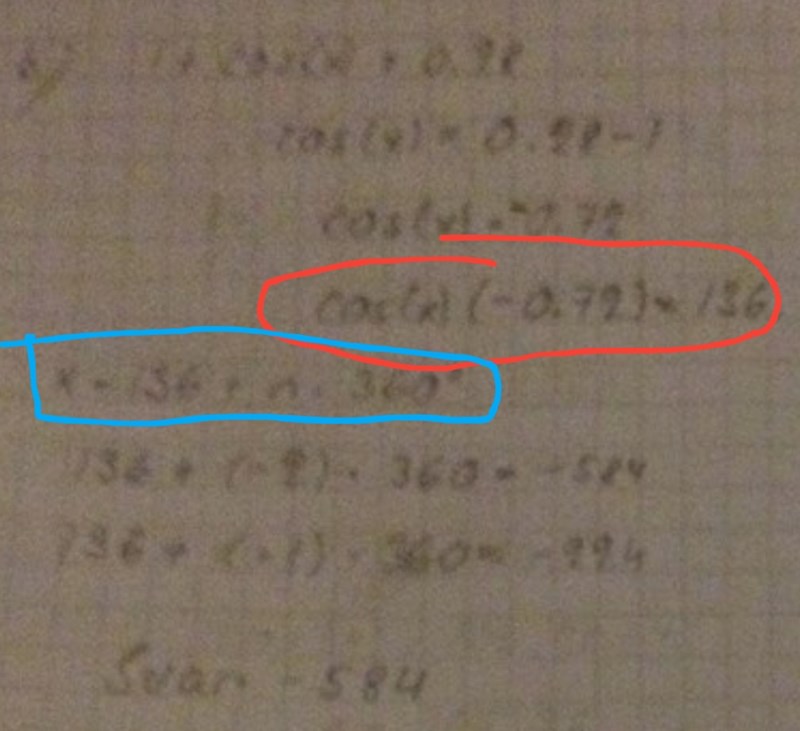 b) 1 + cos(x) = 0.28
cos(x) = 0.28-1
cos(x) = -0.72
cos(x) (-0.72) = 136
x = 136 + n · 360°
136 + (-2) · 360 = -584
136 + (-1) · 360 = -224
Svar: -584